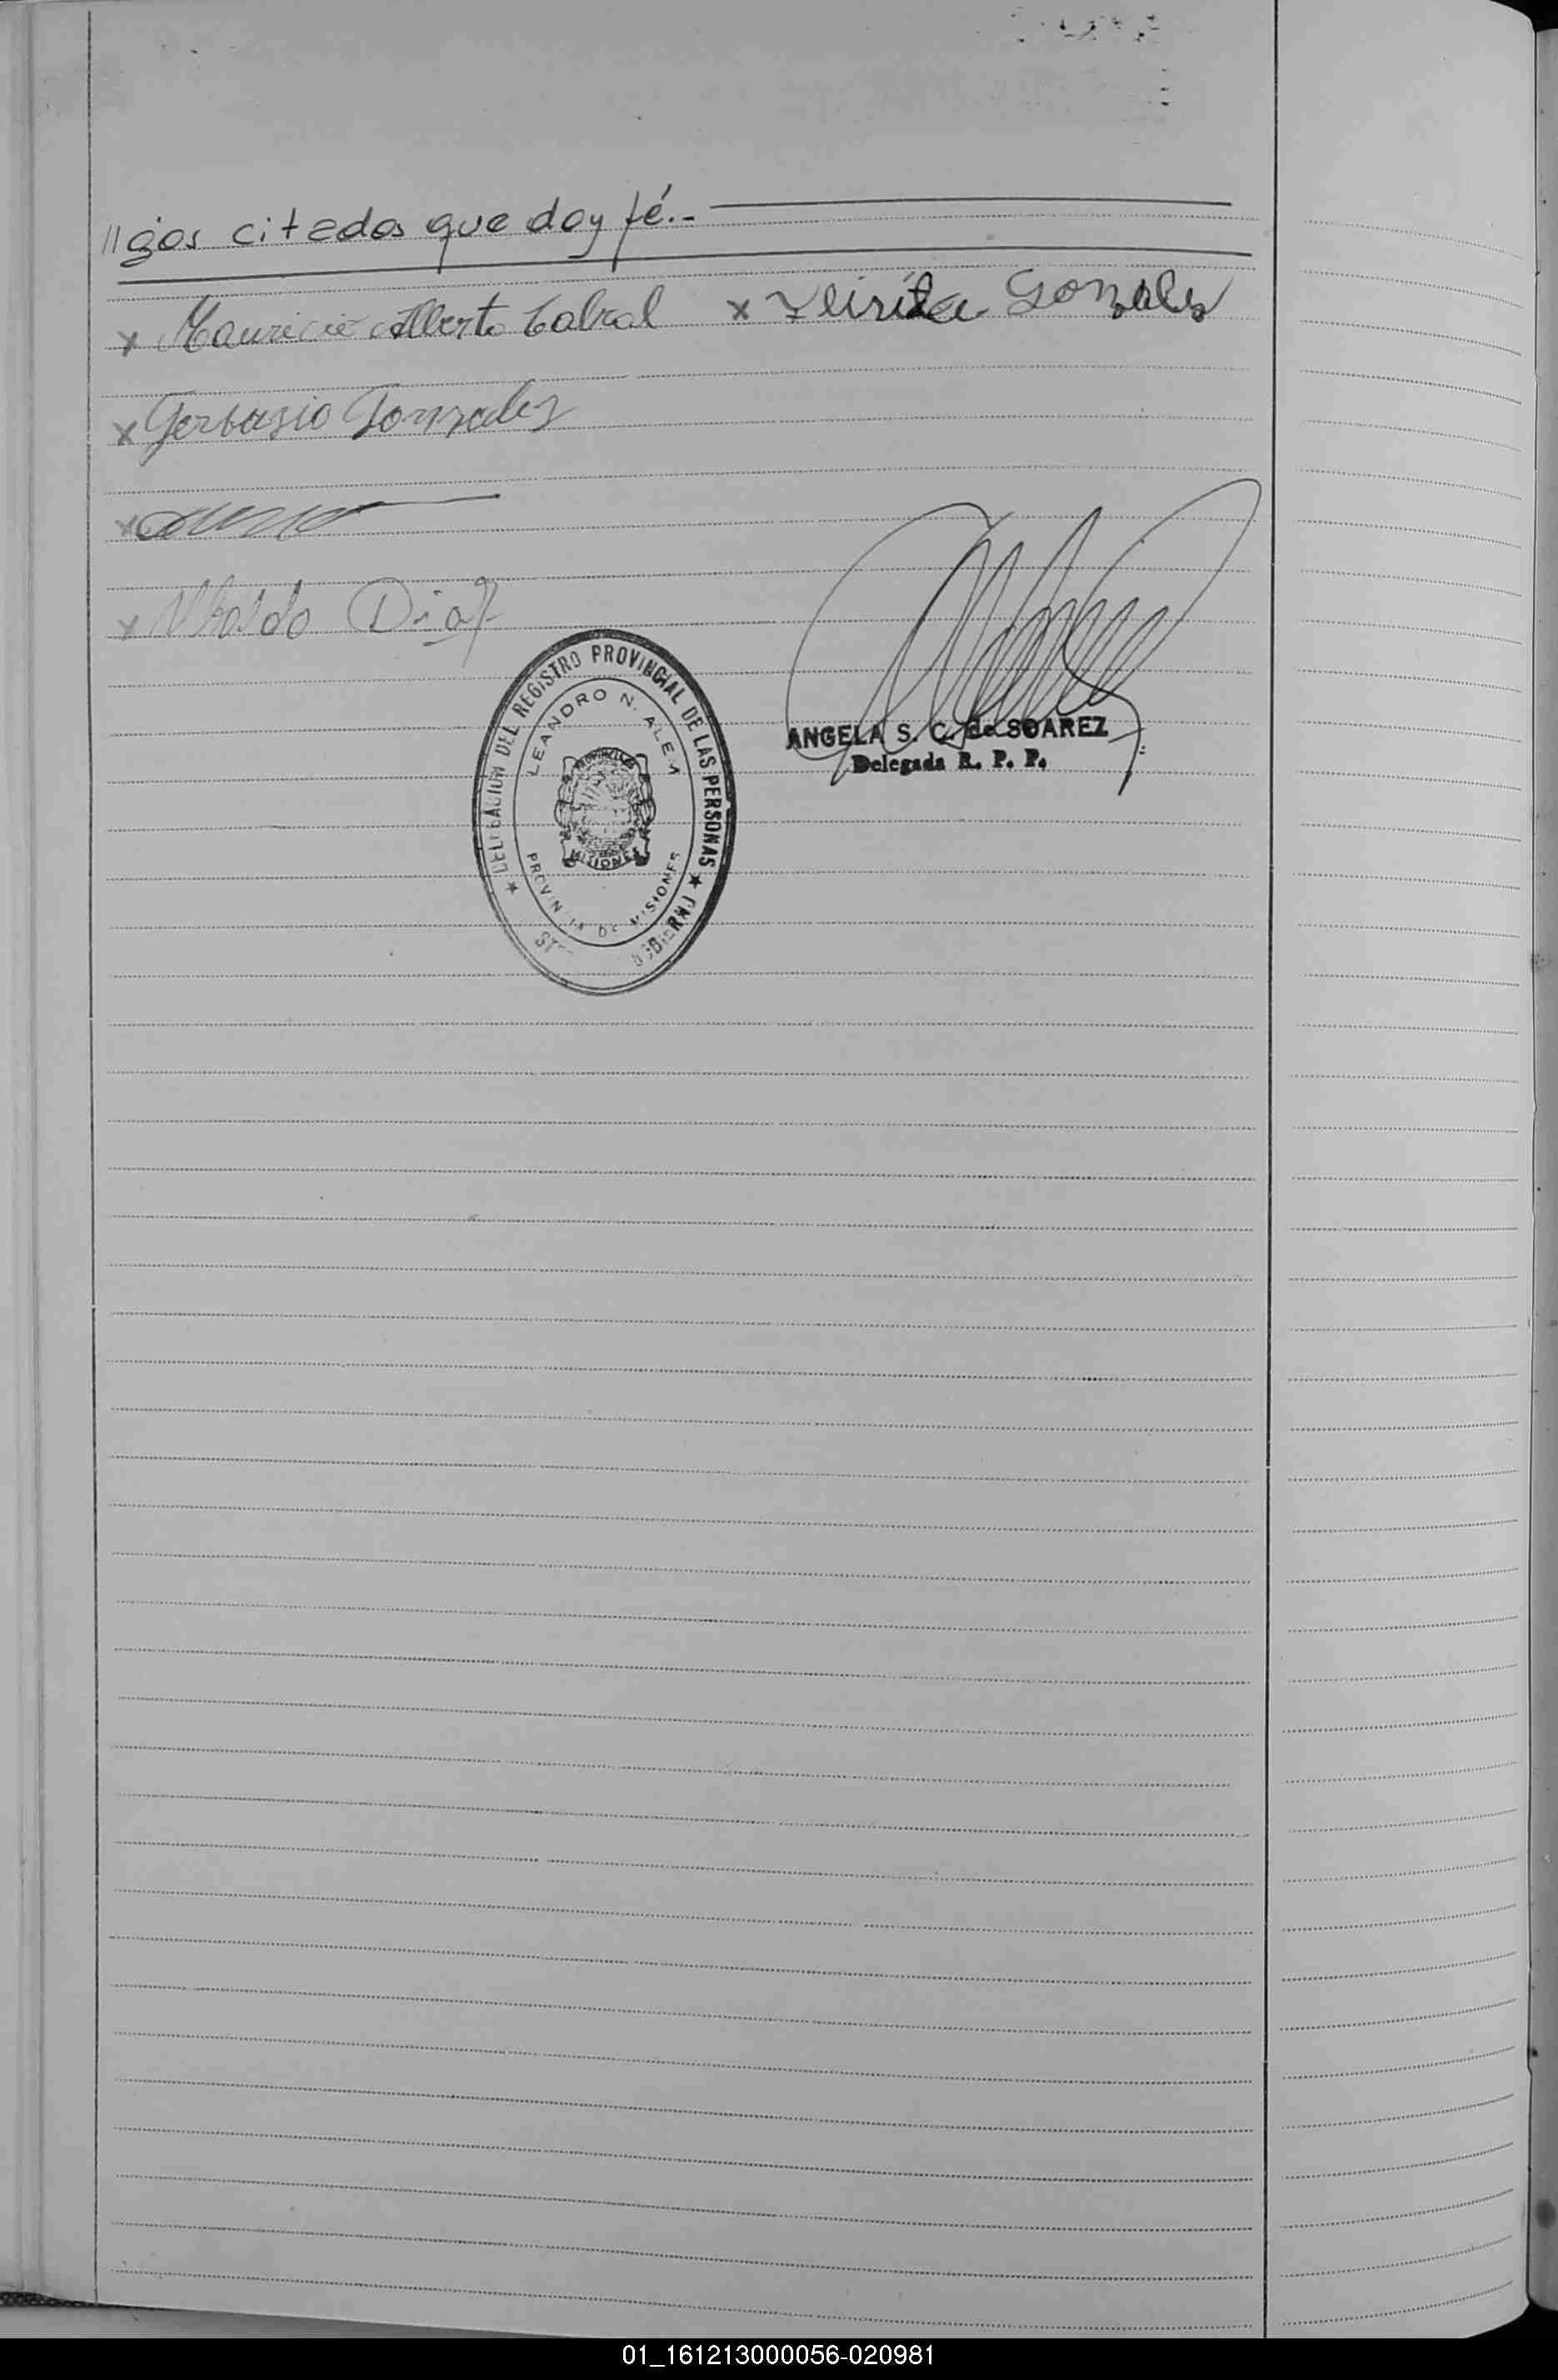 //gos citados que doy fé.-
x Mauricio Alberto Cabral x Gonzales
x Gerbasio Gonzales
x
x Ubaldo Diaz
DELEGACION DEL REGISTRO PROVINCIAL DE LAS PERSONAS
LEANDRO N. ALEM
MISIONES
PROVINCIA DE MISIONES
GOBIERNO
ANGELA S. C. de SOAREZ
Delegada R. P. P.
01_161213000056-020981